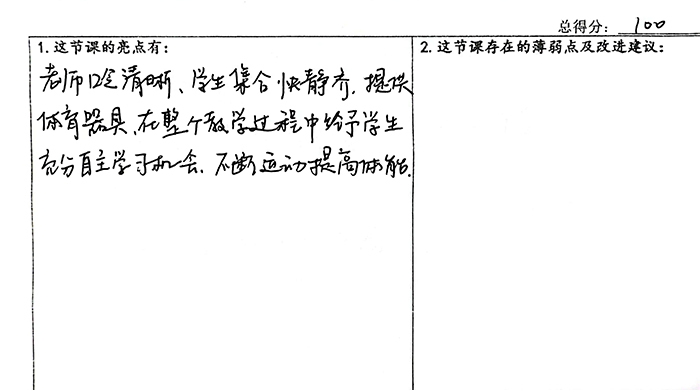 总得分: 100
1. 这节课的亮点有:
2. 这节课存在的薄弱点及改进建议:
老师口令清晰、学生集合快静齐. 提供
体育器具、在整个教学过程中给予学生
充分自主学习机会. 不断运动提高体能.